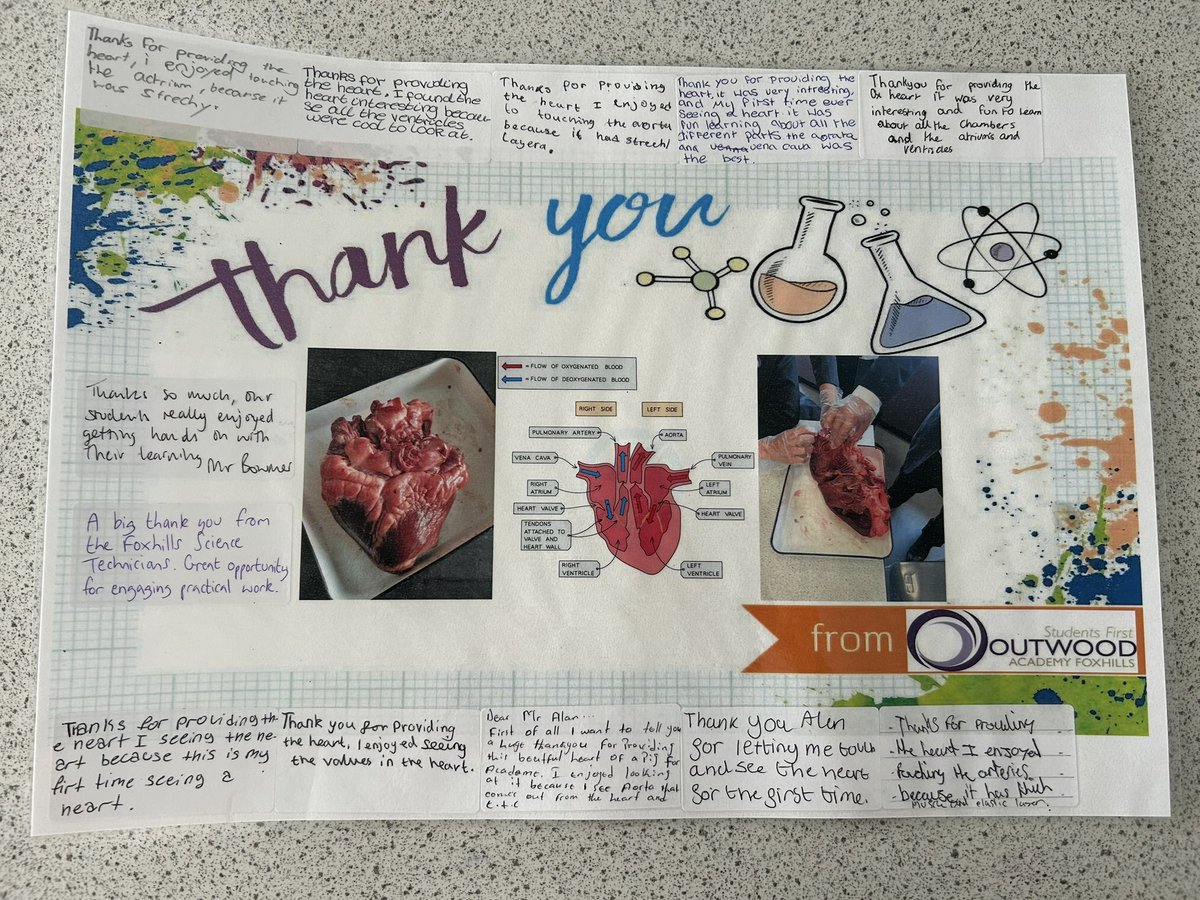 Thanks for providing the
heart, i enjoyed touching
the actrium because it
was strechy.
Thanks for providing
the heart. I found the
heart interesting becau
se all the ventricles
were cool to look at.
Thanks for Providing
the heart I enjoyed
to touching the aorta
because it had strech/
Layera.
Thank you for providing the
heart, it was very intresting,
and My first time ever
seeing a heart it was
fun learning about all the
different parts the aorata
and vena cava was
the best.
Thankyou for providing the
Ox heart it was very
interesting and fun to learn
about all the chambers
and the atriums and
ventricles
thank you
Thanks so much, our
students really enjoyed
getting hands on with
their learning Mr Bowmer
A big thank you from
the Foxhills Science
Technicians. Great opportunity
for engaging practical work.
= FLOW OF OXYGENATED BLOOD
= FLOW OF DEOXYGENATED BLOOD
RIGHT SIDE
LEFT SIDE
PULMONARY ARTERY
AORTA
VENA CAVA
PULMONARY
VEIN
RIGHT
ATRIUM
LEFT
ATRIUM
HEART VALVE
HEART VALVE
TENDONS
ATTACHED TO
VALVE AND
HEART WALL
RIGHT
VENTRICLE
LEFT
VENTRICLE
from
Students First
OUTWOOD
ACADEMY FOXHILLS
Thanks for providing th
e heart I seeing the he
art because this is my
firt time seeing a
heart.
Thank you for Providing
the heart, I enjoyed seeing
the values in the heart.
Dear Mr Alan...
First of all I want to tell you
a huge thankyou for Providing
this beutful heart of a Pig for
Academe. I enjoyed looking
at it because I see Aorta that
comes out from the heart and
e.t.c
Thank you Alen
for letting me touch
and see the heart
for the first time.
Thanks for providing
the heart I enjoyed
the arteries
because it has thich
muscle and elastic